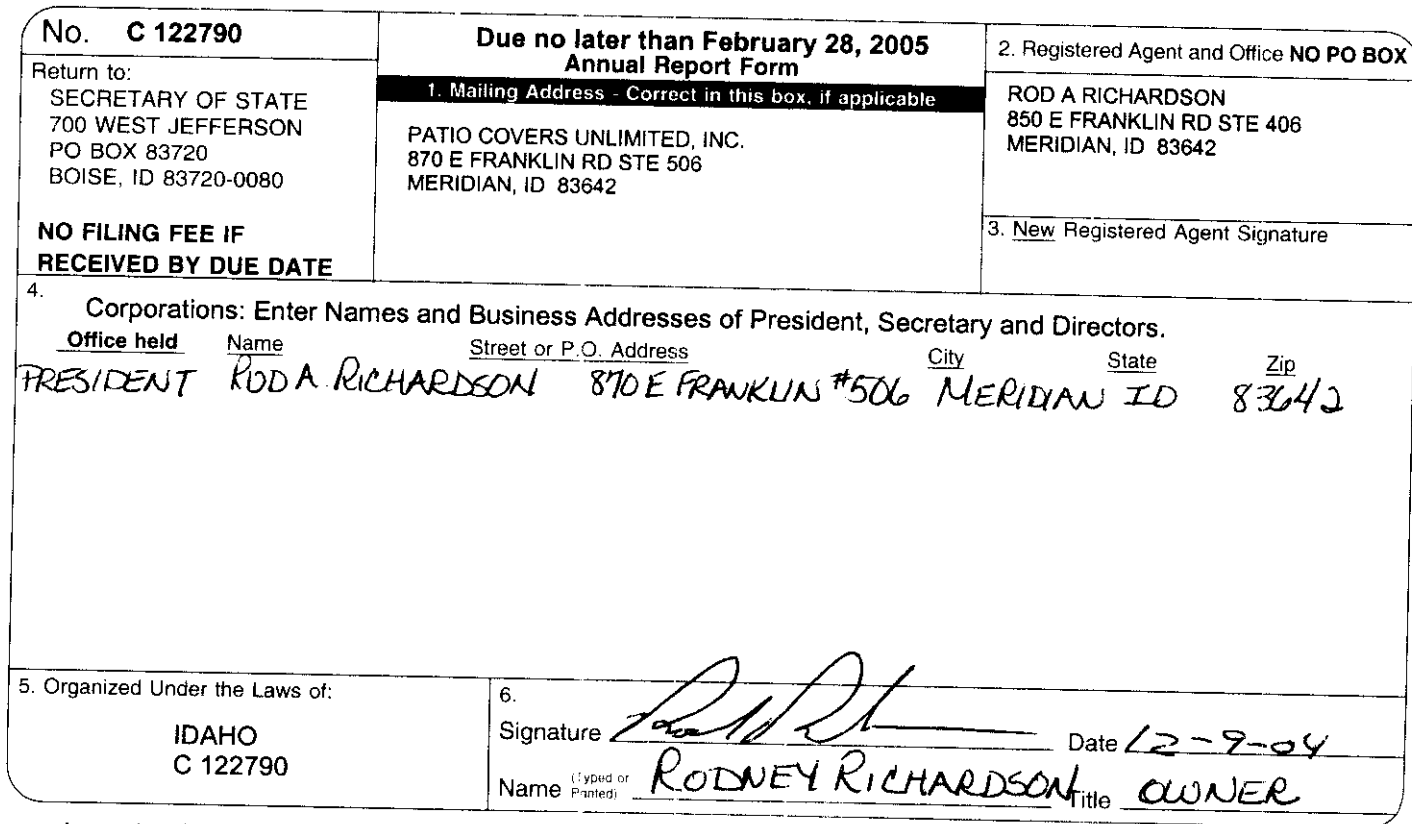 No. C 122790
Return to:
SECRETARY OF STATE
700 WEST JEFFERSON
PO BOX 83720
BOISE, ID 83720-0080
NO FILING FEE IF
RECEIVED BY DUE DATE
Due no later than February 28, 2005
Annual Report Form
1. Mailing Address - Correct in this box, if applicable
PATIO COVERS UNLIMITED, INC.
870 E FRANKLIN RD STE 506
MERIDIAN, ID 83642
2. Registered Agent and Office NO PO BOX
ROD A RICHARDSON
850 E FRANKLIN RD STE 406
MERIDIAN, ID 83642
3. New Registered Agent Signature
4.
Corporations: Enter Names and Business Addresses of President, Secretary and Directors.
Office held Name Street or P.O. Address City State Zip
PRESIDENT ROD A. RICHARDSON 870 E FRANKLIN #506 MERIDIAN ID 83642
5. Organized Under the Laws of:
IDAHO
C 122790
6.
Signature Date 12-9-04
Name (Typed or Printed) RODNEY RICHARDSON Title OWNER